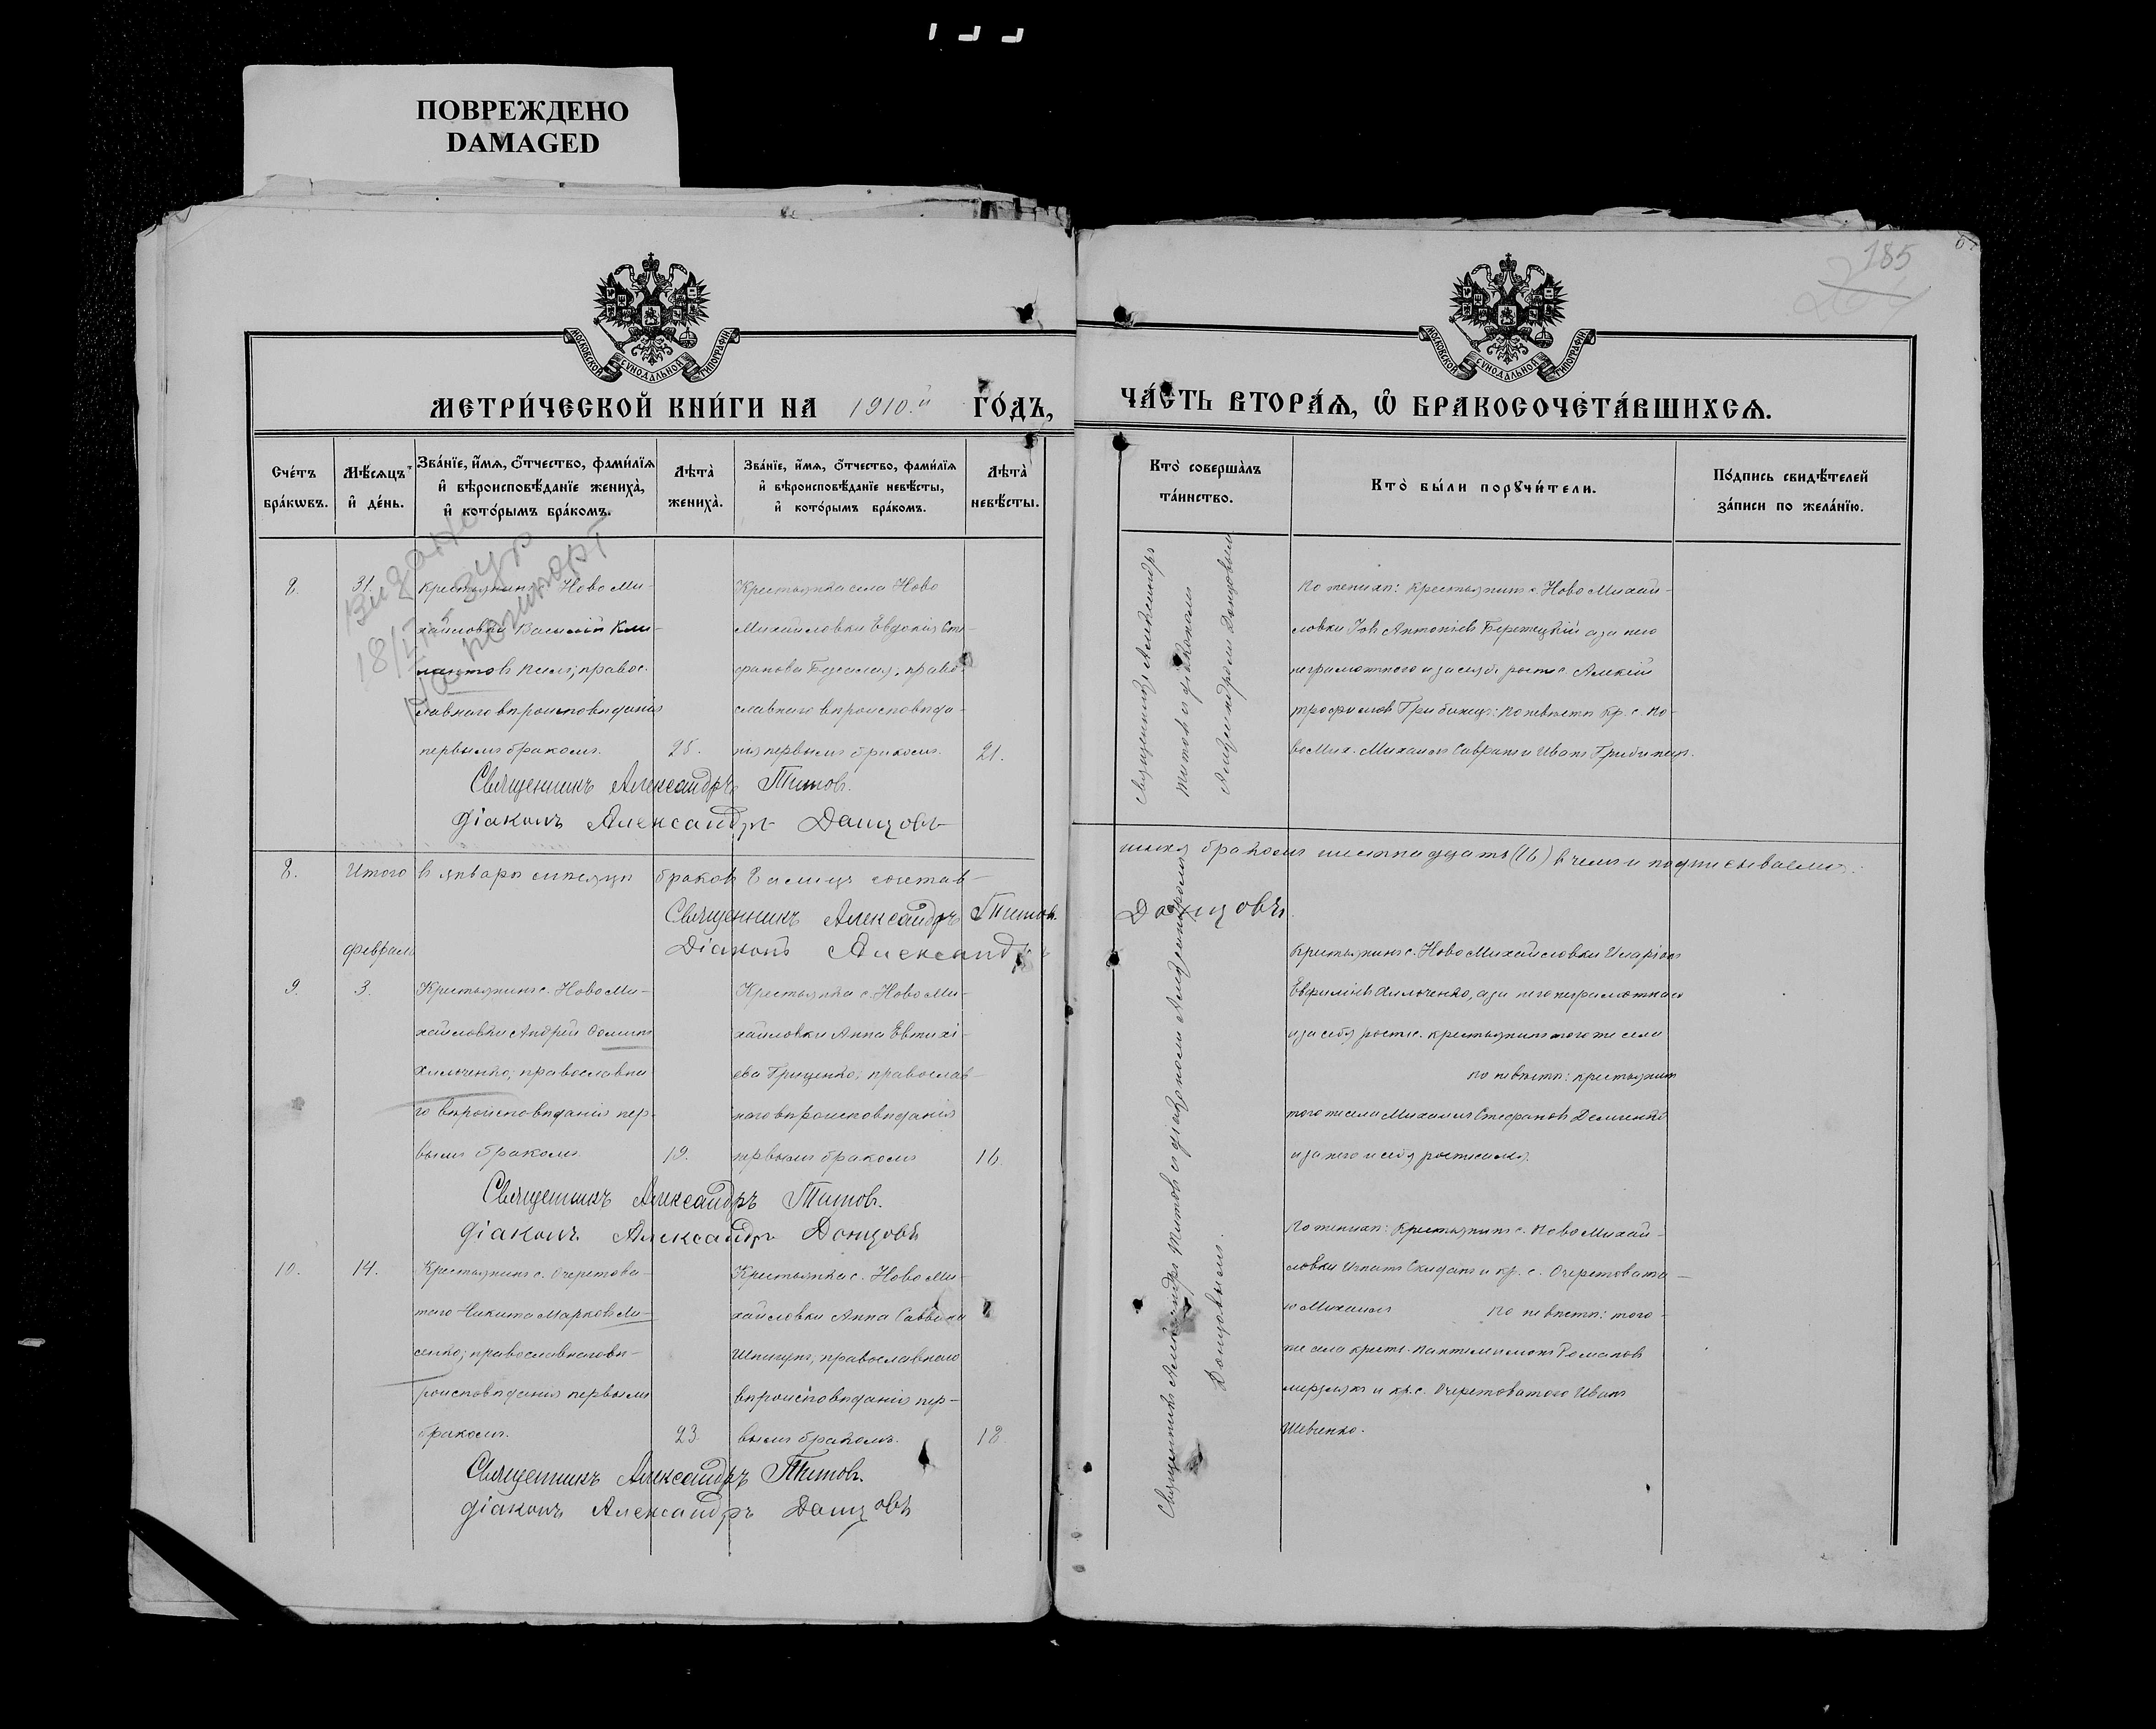 ПОВРЕЖДЕНО
DAMAGED
185
МОСКОВСКОЙ СѴНОДАЛЬНОЙ ТИПОГРАФІИ
МОСКОВСКОЙ СѴНОДАЛЬНОЙ ТИПОГРАФІИ
МЕТРИ́ЧЕСКОЙ КНИ́ГИ НА 1910.й ГО́ДЪ,
ЧА́СТЬ ВТОРА́Я, Ѿ БРАКОСОЧЕТА́ВШИХСЯ.
Сче́тъ бра́кѡвъ.
Мѣ́сяцъ и҆ де́нь.
Зва́нїе, и҆́мя, ѻ҆́тчество, фами́лїя
и҆ вѣроисповѣ́данїе жениха̀,
и҆ кото́рымъ бра́комъ.
Лѣта̀ жениха̀.
Зва́нїе, и҆́мя, ѻ҆́тчество, фами́лїя
и҆ вѣроисповѣ́данїе невѣ́сты,
и҆ кото́рымъ бра́комъ.
Лѣта̀ невѣ́сты.
Кто̀ соверша́лъ
та́инство.
Кто̀ бы́ли порꙋчи́тели.
По́дпись свидѣ́телей
за́писи по жела́нїю.
8.
31.
Крестьянинъ Ново Ми-
хайловки Василій Кли-
ментов; правос-
лавнаго вѣроисповѣданія
первымъ бракомъ.
25.
Крестьянка села Ново
Михайловки Евдокія Сте-
фанова, право-
славнаго вѣроисповѣда-
нія первымъ бракомъ.
21.
Священникъ Александръ
Титовъ съ діакономъ
Александромъ Донцовымъ
По женихѣ: крестьянинъ с. Ново Михай-
ловки Іовъ Антоніевъ Бережецкій а за него
неграмотнаго и за себя рост. с. Алексѣй
Трофимовъ Грибинец: По невѣстѣ кр. с. Но-
во Мих. Михаилъ Савранъ и Иванъ Грибинец.
Священникъ Александръ Титовъ.
Діаконъ Александръ Донцовъ
8. Итого в январѣ мѣсяцѣ браковъ 8 а лицъ состав-
шихся бракомъ шестнадцать (16) в чемъ и подписываемся:
Священникъ Александръ Титовъ.
Діаконъ Александръ Донцовъ.
Февраль
9.
3.
Крестьянинъ с. Ново Ми-
хайловки Андрей Фомичъ
Хильченко; православна
го вѣроисповѣданія пер-
вымъ бракомъ.
19.
Крестьянка с. Ново Ми-
хайловки Анна Евтихі-
ева Гриценко; православ-
наго вѣроисповѣданія
первымъ бракомъ
16
Крестьянинъ с. Ново Михайловки Иларіонъ
Евфиміевъ Хильченко, а за него неграмотнаго
и за себя рост. с. крестьянинъ того же села
по невѣстѣ: крестьянинъ
того же села Михаилъ Стефановъ Демченко
и за него и себя росписался.
Священникъ Александръ Титовъ.
Діаконъ Александръ Донцовъ
10.
14.
Крестьянинъ с. Очеретова-
таго Никита Марковъ Ли-
сенко; православнаго вѣ-
роисповѣданія первымъ
бракомъ.
23
Крестьянка с. Ново Ми-
хайловки Анна Саввина
Шпигунъ, православнаго
вѣроисповѣданія пер-
вымъ бракомъ.
18
Священникъ Александръ Титовъ съ діакономъ Александромъ
Донцовымъ.
По женихѣ: крестьянинъ с. Ново Михай-
ловки Игнатъ Скидан и кр. с. Очеретовата-
го Михаилъ По невѣстѣ: того-
же села крест. Пантелимонъ Романовъ
Мерзлякъ и кр. с. Очеретоватаго Иванъ
Шевченко.
Священникъ Александръ Титовъ.
Діаконъ Александръ Донцовъ